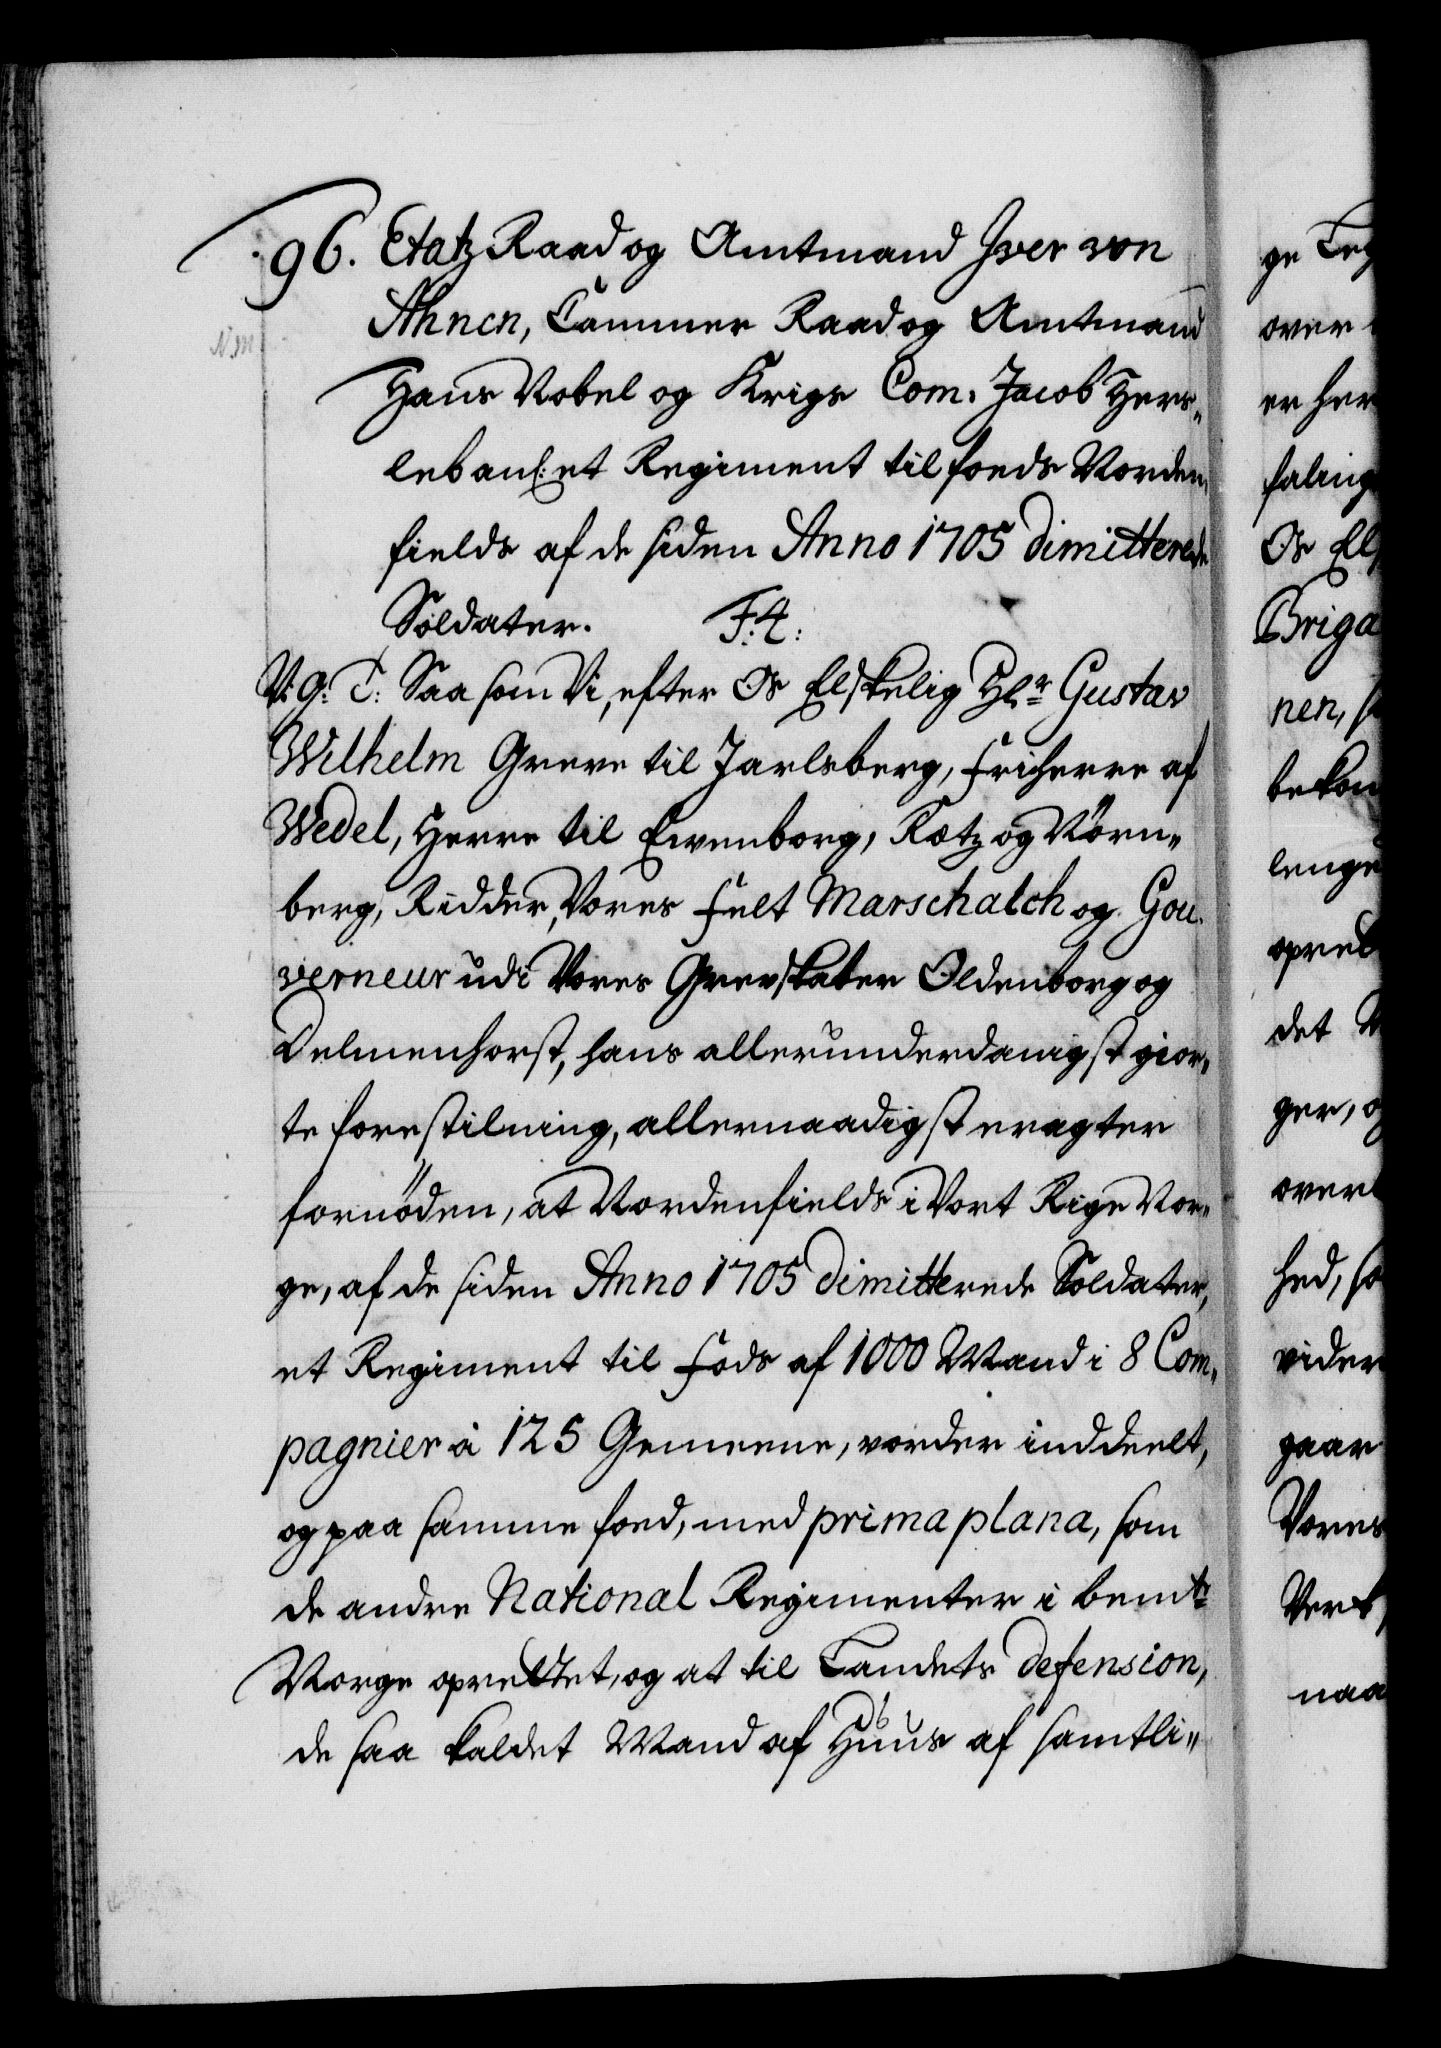 96. Etatz Raad og Amtmand Iver von
Ahnen, Cammer Raad og Amtmand
Hans Nobel og Krigs Com. Jacob Hers-
leb anl: et Regiment til foeds Norden-
fields af de siden Anno 1705 dimitterede
Soldater. F: 4:
V: G: T: Saa som Vi, efter Os Elskelig Hr. Gustav
Wilhelm Greve til Jarlsberg, Friherre af
Wedel, Herre til Ewenborg, Kotz og Nörn-
berg, Ridder, Vores Felt Marschalck og Gou-
verneur udi Vores Grevskaber Oldenborg og
Delmenhorst, hans allerunderdanigst gior-
te forestilning, allernaadigst eragter
fornöden, at Nordenfields i Vort Rige Nor-
ge, af de siden Anno 1705 dimitterede Soldater,
et Regiment til Fods af 1000 Mand i 8 Com-
pagnier à 125 Gemeene, vorder inddeelt,
og paa samme foed, med prima plana, som
de andre National Regimenter i bemte
Norge oprettet, og at til Landets defension,
de saa kaldet Mand af Huus af samtli-
ge Leg
over
er her
falinge
Os El
Briga
nen, s
bekom
lenge
opret
det
ger, og
over
hed, so
vider
gaar
Vores
Verk
naa